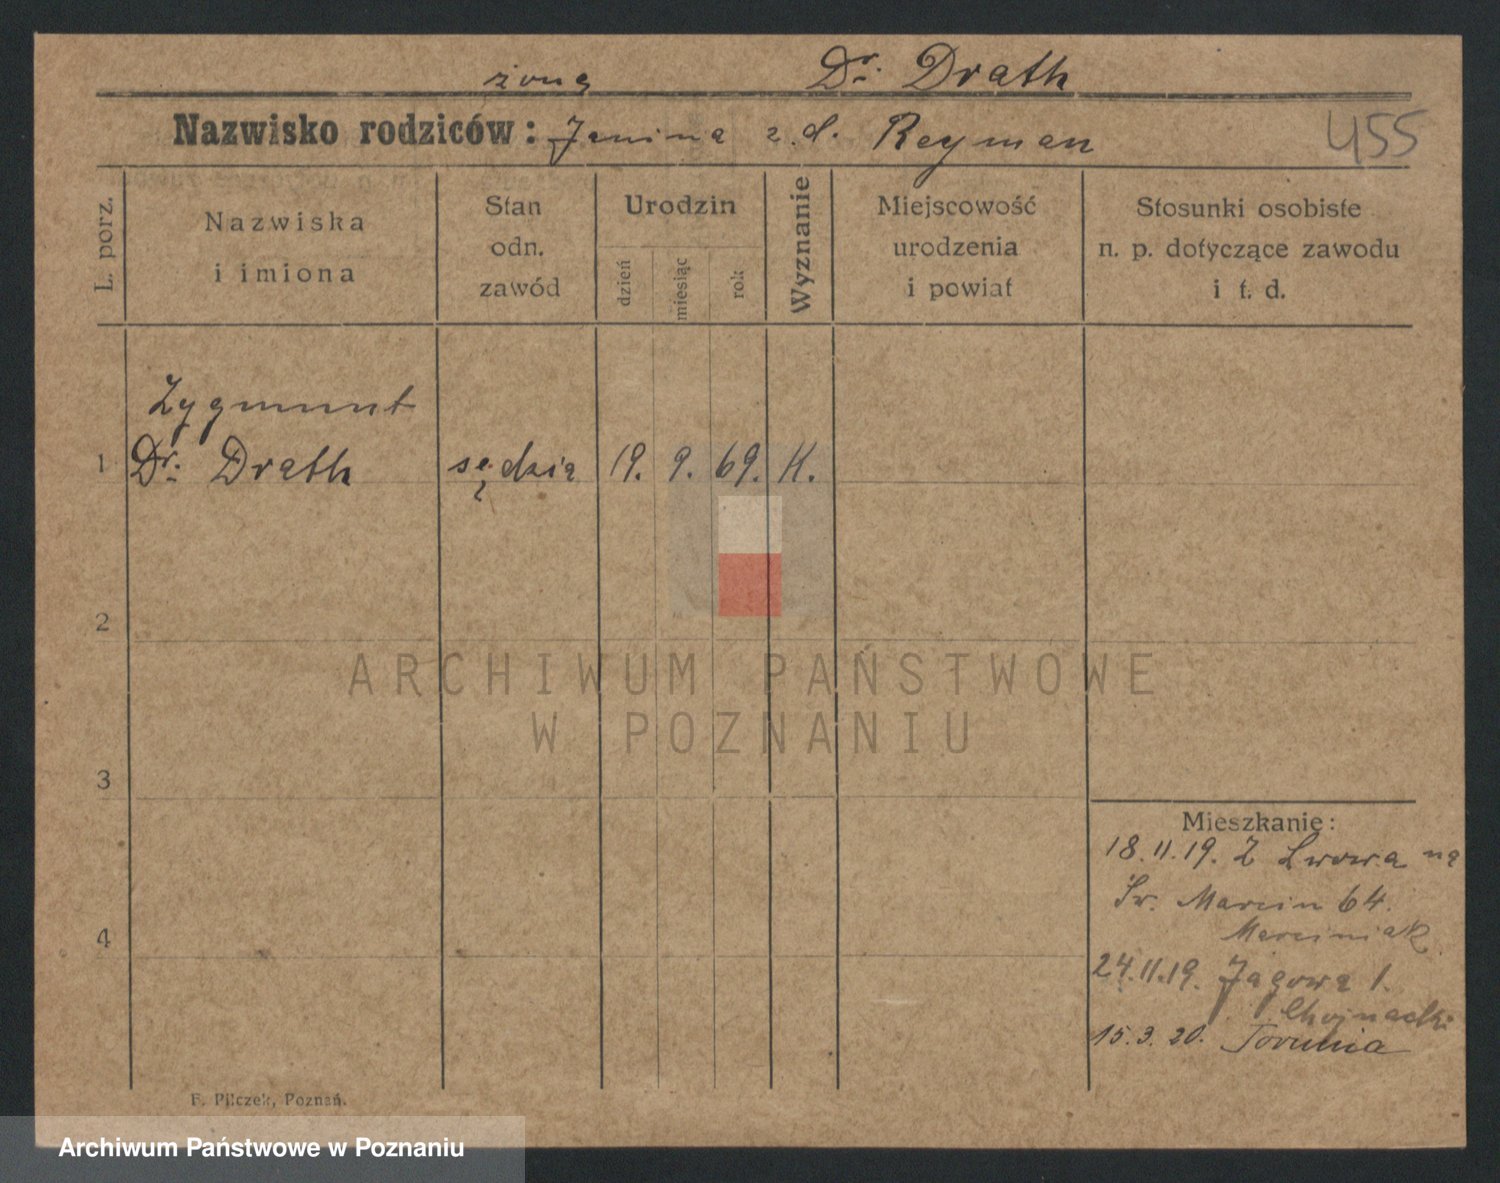 żona Dr. Drath
Nazwisko rodziców: Janina z d. Reyman 455
L. porz.
Nazwiska
i imiona
Stan
odn.
zawód
Urodzin
dzień
miesiąc
rok
Wyznanie
Miejscowość
urodzenia
i powiat
Stosunki osobiste
n. p. dotyczące zawodu
i t. d.
Zygmunt
1 Dr. Drath sędzia 19. 9. 69. K.
2
ARCHIWUM PAŃSTWOWE
W POZNANIU
3
Mieszkanie:
18.11.19. Z Lwowa na
Św. Marcin 64.
Marciniak
4
24.11.19. Jagowa 1.
Chojnacki
15.3.20. Torunia
F. Pilczek, Poznań.
Archiwum Państwowe w Poznaniu